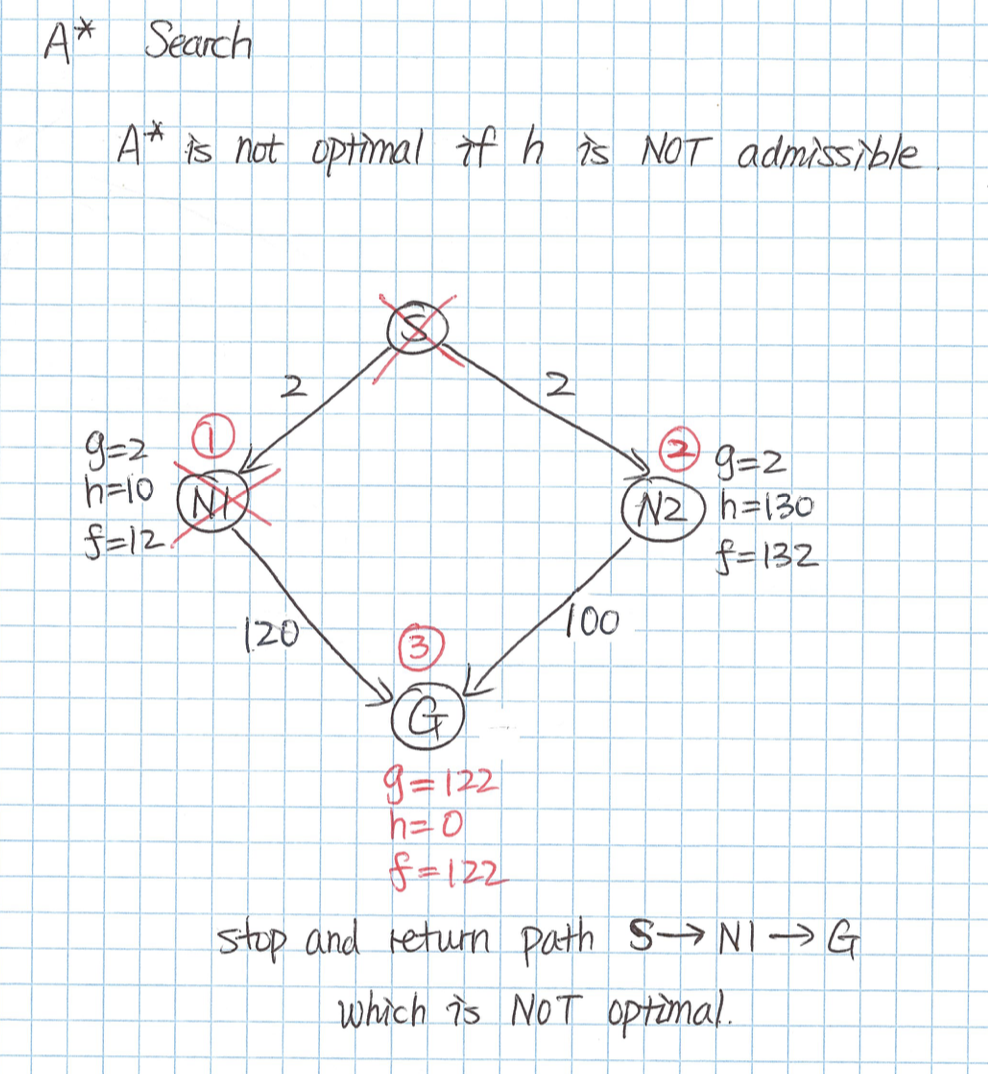 A* Search
A* is not optimal if h is NOT admissible.
S
2
2
①
②
g=2
h=10
f=12
N1
N2
g=2
h=130
f=132
120
100
③
G
g=122
h=0
f=122
stop and return path S→N1→G
which is NOT optimal.